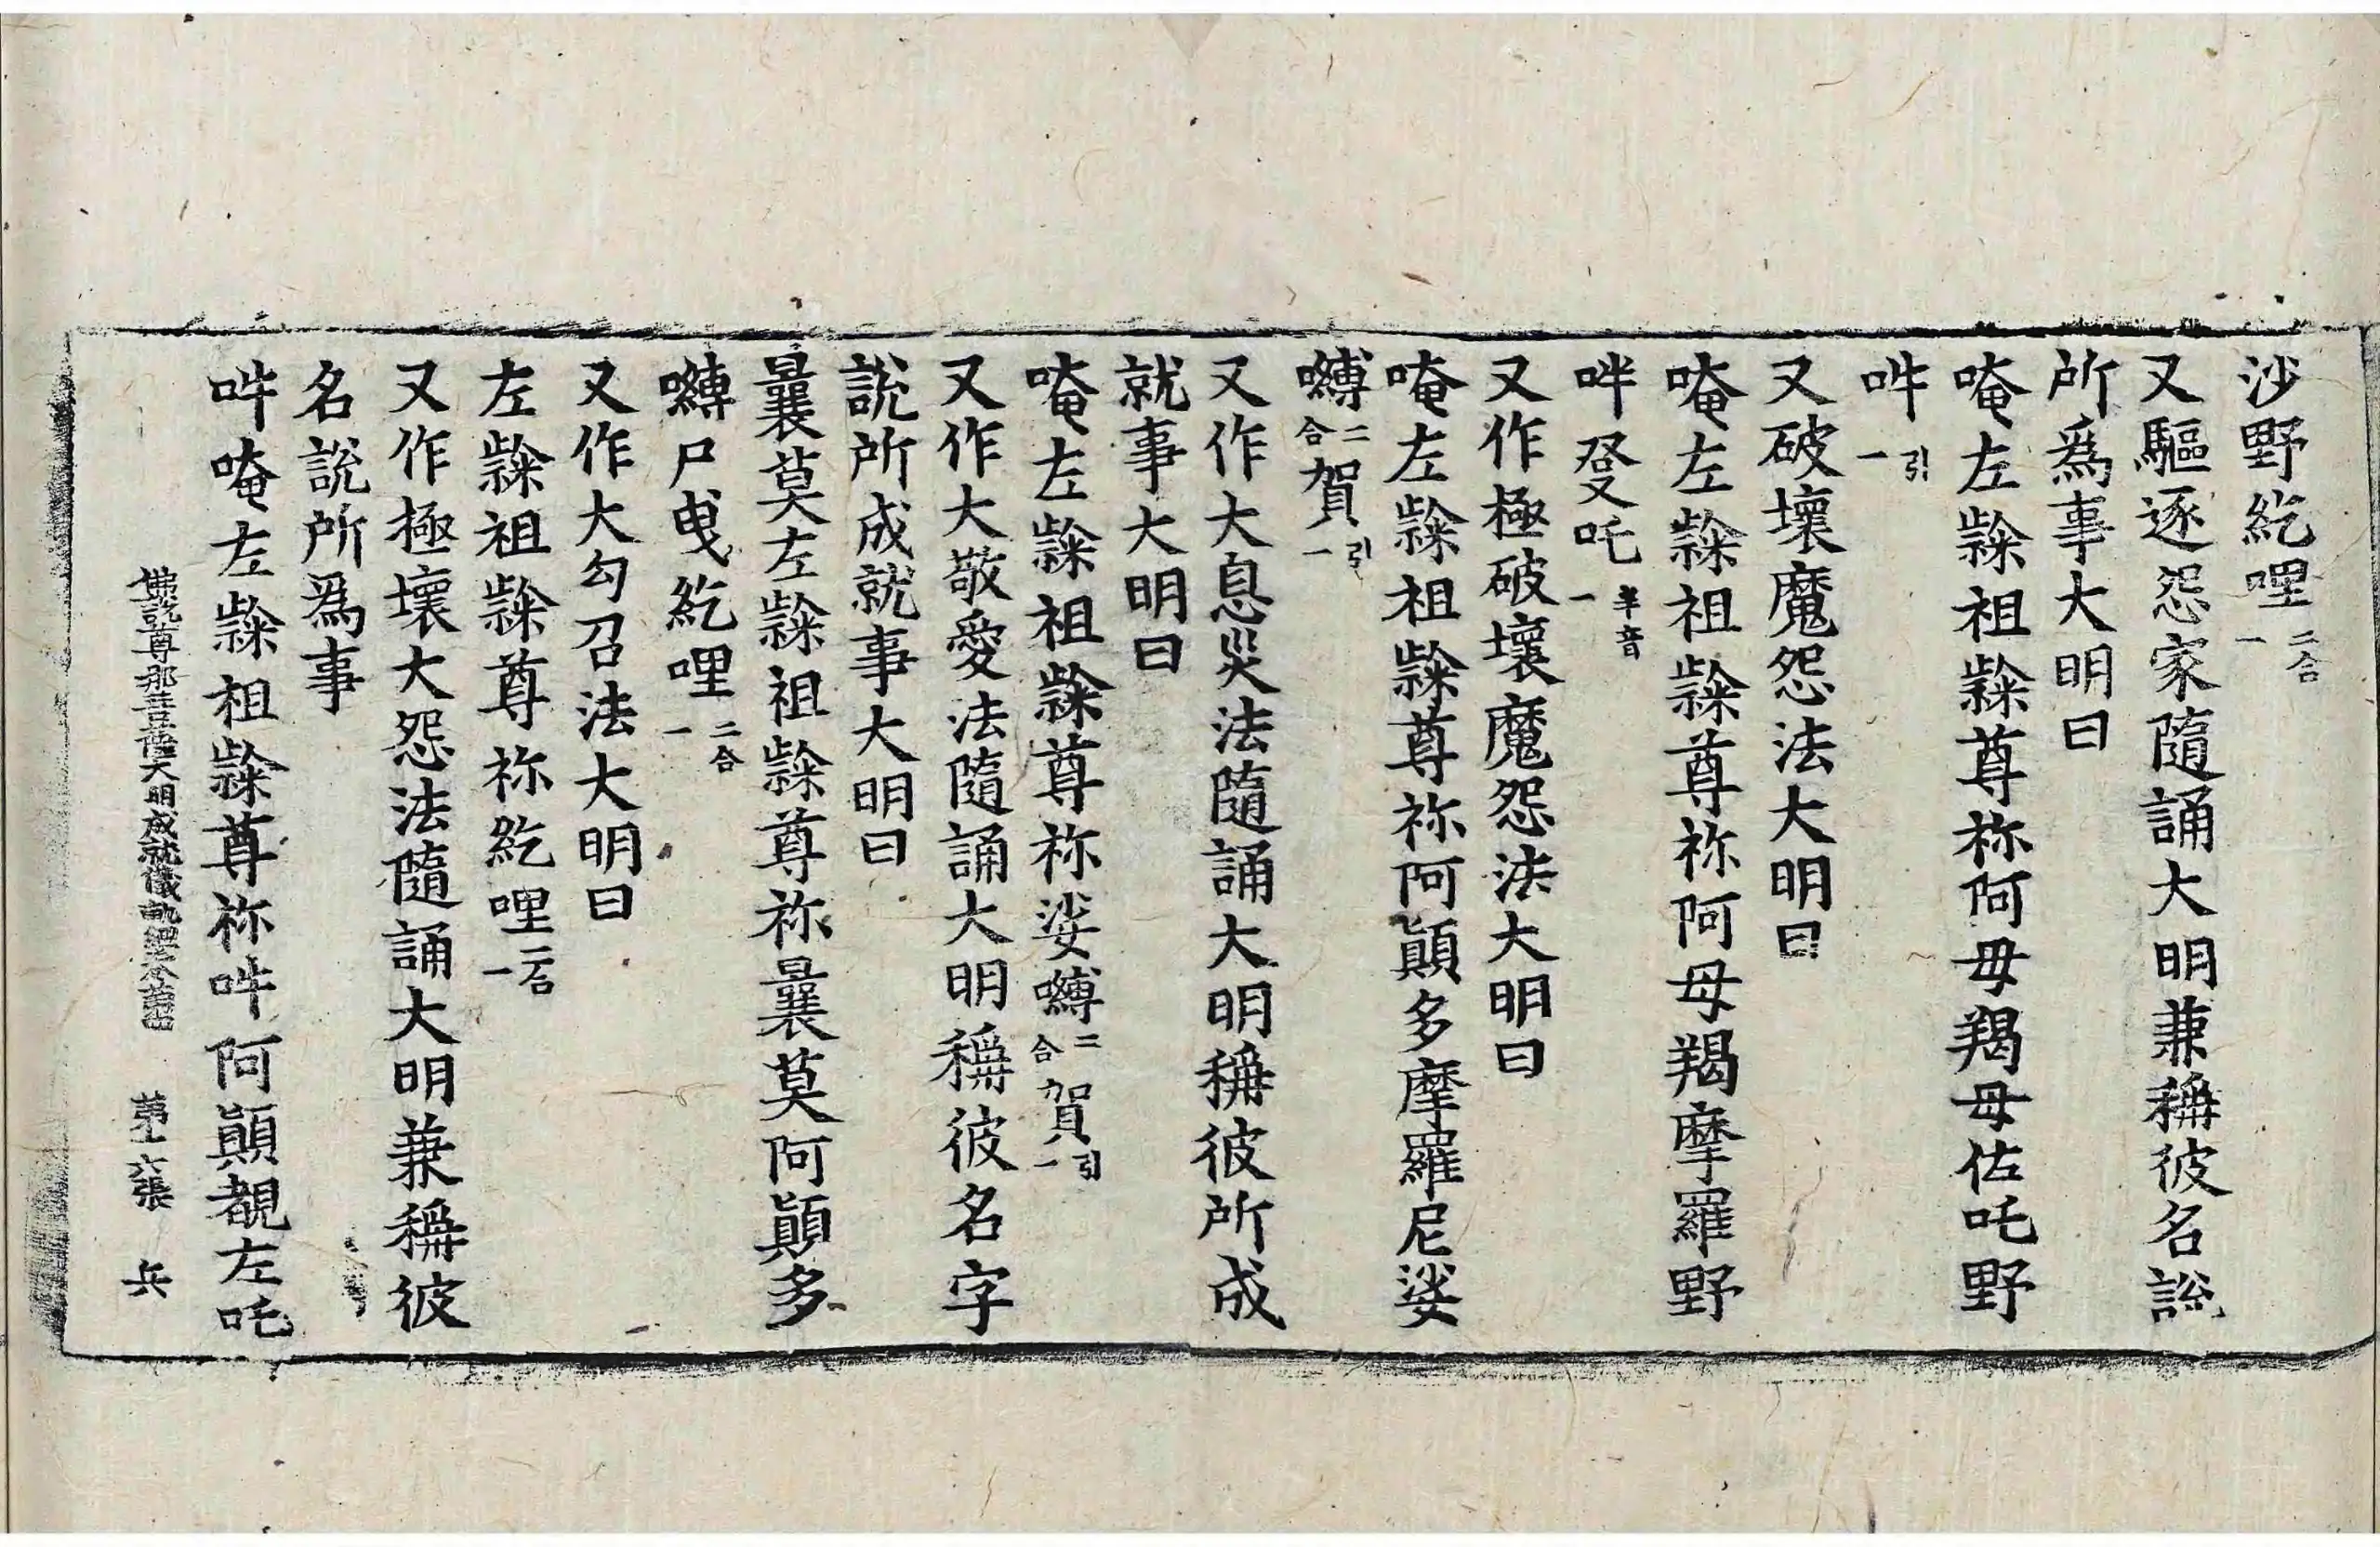 沙野紇哩二合一
又驅逐怨家隨誦大明兼稱彼名說
所爲事大明曰
唵左隸祖隸尊祢阿毋羯毋佐吒野
吽引一
又破壞魔怨法大明曰
唵左隸祖隸尊祢阿母羯摩羅野
吽癹吒半音一
又作極破壞魔怨法大明曰
唵左隸祖隸尊祢阿顛多摩羅尼娑
嚩二合賀引一
又作大息災法隨誦大明稱彼所成
就事大明曰
唵左隸祖隸尊祢娑嚩二合賀引一
又作大敬愛法隨誦大明稱彼名字
說所成就事大明曰
曩莫左隸祖隸尊祢曩莫阿顛多
嚩尸曳紇哩二合一
又作大勾召法大明曰
左隸祖隸尊祢紇哩二合一
又作極壞大怨法隨誦大明兼稱彼
名說所爲事
吽唵左隸祖隸尊祢吽阿顛覩左吒
佛說尊那菩薩大明成就儀軌經卷第四 第十六張 兵